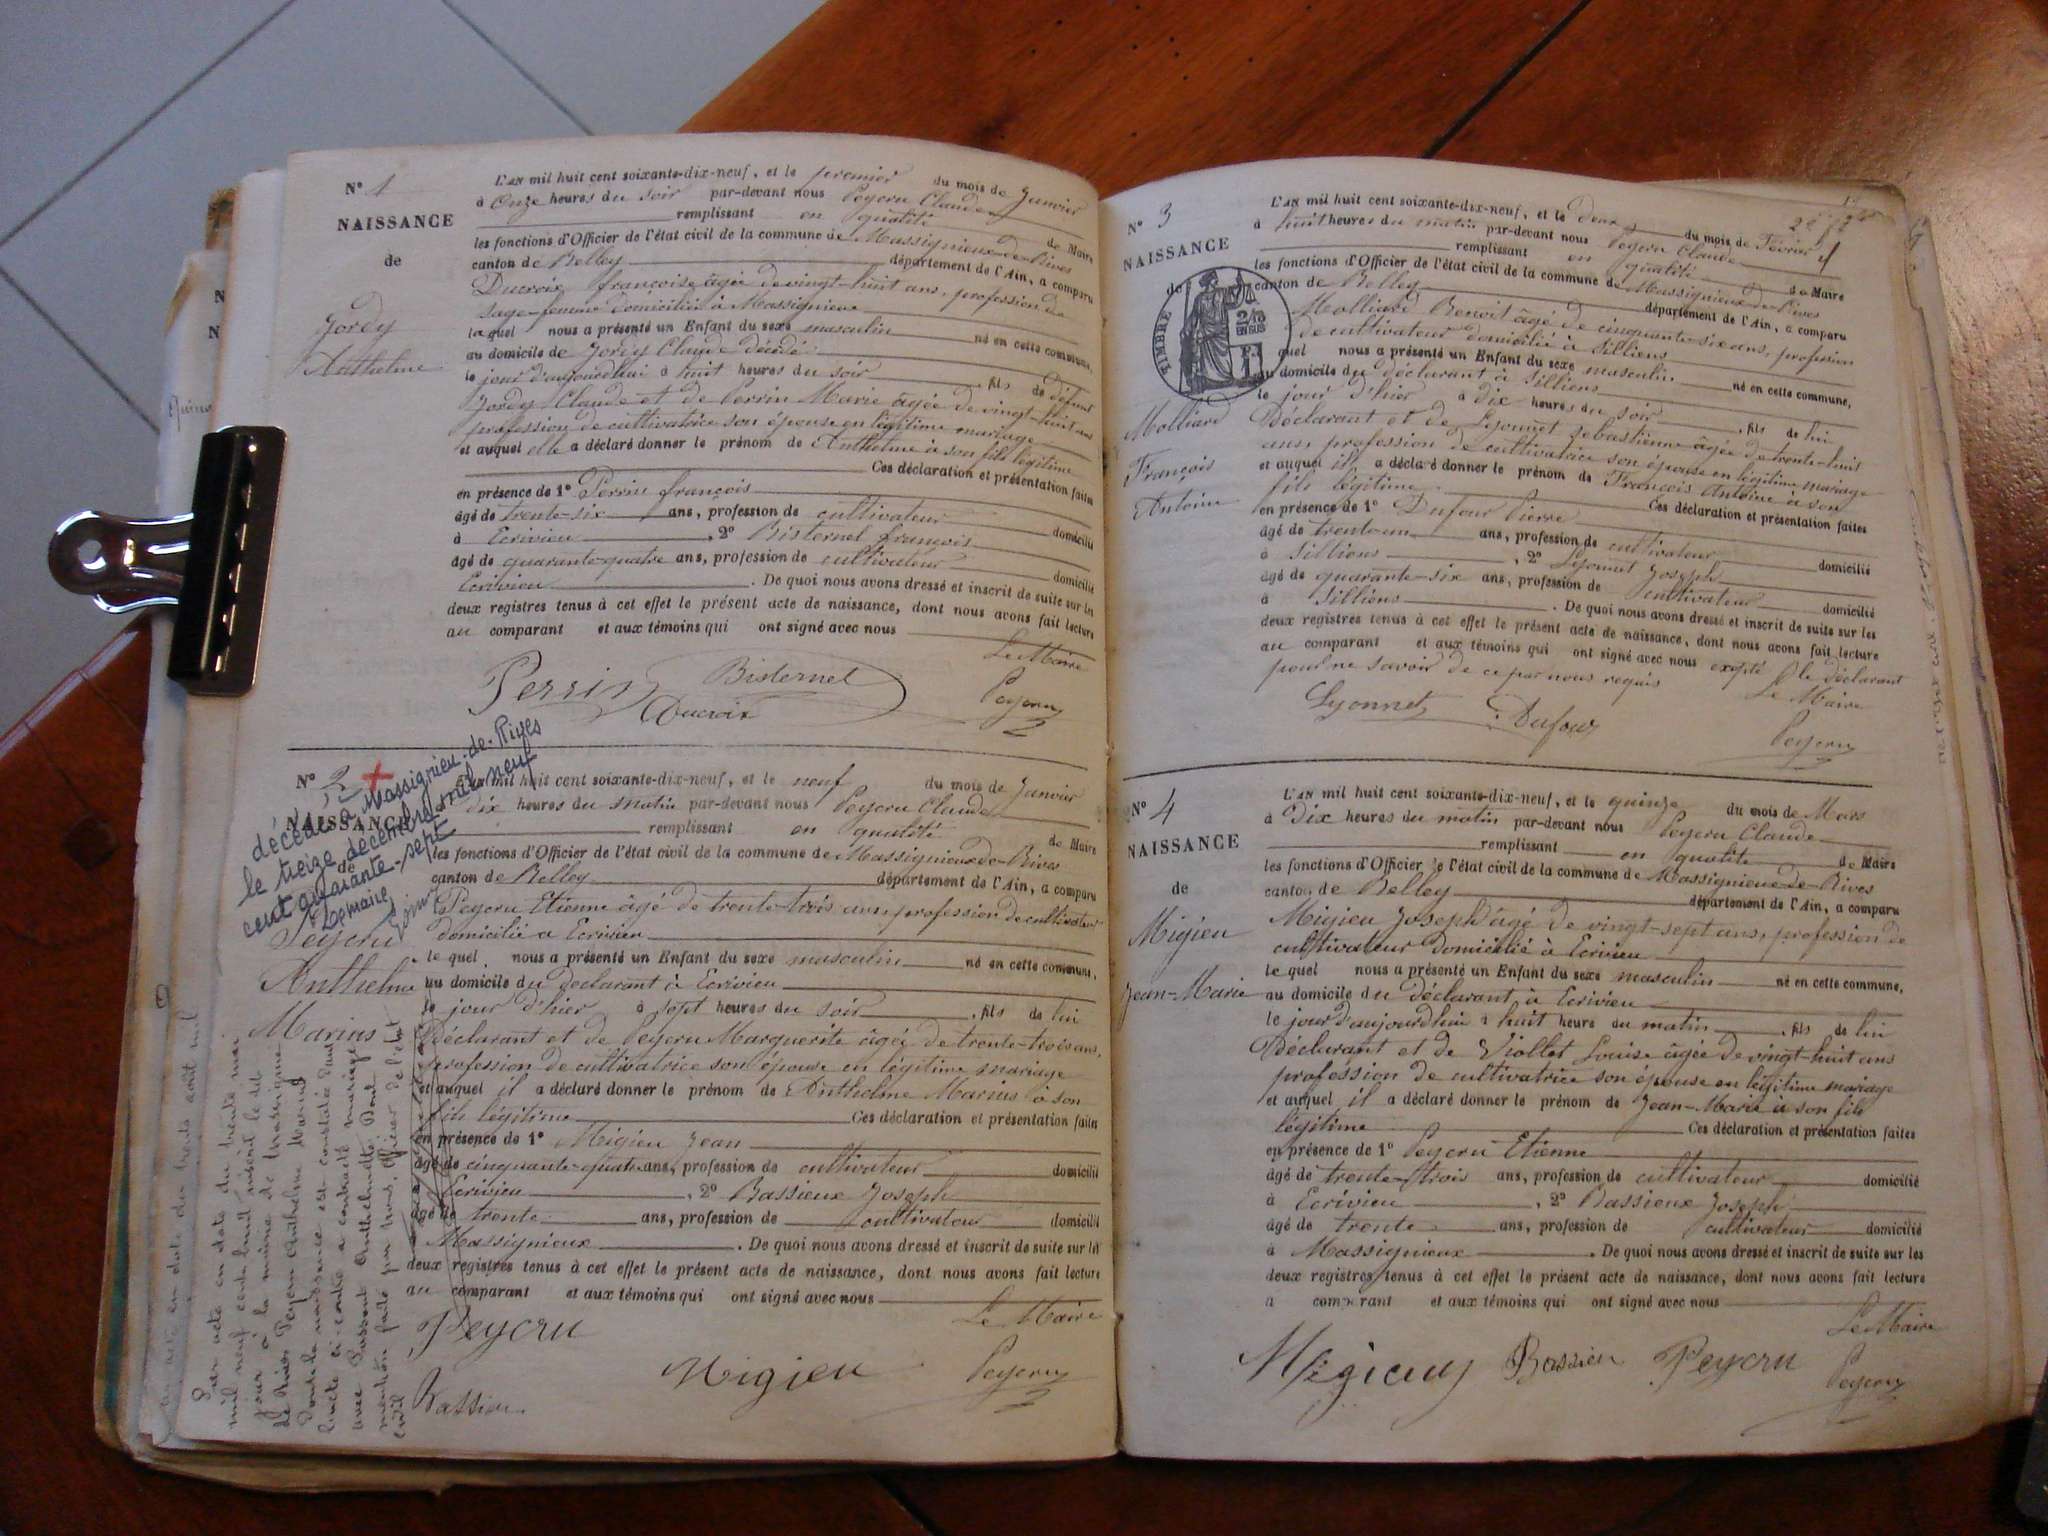 N° 1
NAISSANCE
de
Jordy
Anthelme
L'AN mil huit cent soixante-dix-neuf, et le premier du mois de Janvier
à Onze heures du soir par-devant nous Peycru Claude
remplissant en qualité de Maire
les fonctions d'Officier de l'état civil de la commune de Massignieux-de-Rives
canton de Belley département de l'Ain, a comparu
Ducroix françoise âgée de vingt-huit ans, profession de
sage-femme domiciliée à Massignieux
laquel nous a présenté un Enfant du sexe masculin né en cette commune,
au domicile de Jordy Claude décédé
le jour d'aujourdhui à huit heures du soir, fils de défunt
Jordy Claude et de Perrin Marie âgée de vingt-huit ans
profession de cultivatrice son épouse en légitime mariage
et auquel elle a déclaré donner le prénom de Anthelme à son fils légitime
Ces déclaration et présentation faites
en présence de 1° Perrin françois
âgé de trente-six ans, profession de cultivateur domicilié
à Ecrivieu, 2° Bisternel françois
âgé de quarante-quatre ans, profession de cultivateur domicilié
Ecrivieu. De quoi nous avons dressé et inscrit de suite sur les
deux registres tenus à cet effet le présent acte de naissance, dont nous avons fait lecture
au comparant et aux témoins qui ont signé avec nous
Le Maire
Perrin Bisternel
Ducroix Peycru
N° 2
NAISSANCE
de
décédé à Massignieu-de-Rives
le treize décembre mil neuf
cent quarante-sept
Le Maire
Peycru
Anthelme
Marius
L'AN mil huit cent soixante-dix-neuf, et le neuf du mois de Janvier
dix heures du matin par-devant nous Peycru Claude
remplissant en qualité de Maire
les fonctions d'Officier de l'état civil de la commune de Massignieux-de-Rives
canton de Belley département de l'Ain, a comparu
Peycru Etienne âgé de trente-trois ans, profession de cultivateur
domicilié a Ecrivieu
le quel nous a présenté un Enfant du sexe masculin né en cette commune,
au domicile du déclarant à Ecrivieu
le jour d'hier à sept heures du soir, fils de lui
Déclarant et de Peycru Marguerite âgée de trente-trois ans,
profession de cultivatrice son épouse en légitime mariage
et auquel il a déclaré donner le prénom de Anthelme Marius à son
fils légitime Ces déclaration et présentation faites
en présence de 1° Migieu Jean
âgé de cinquante-quatre ans, profession de cultivateur domicilié
Ecrivieu, 2° Bassieux Joseph
âgé de trente ans, profession de cultivateur domicilié
Massignieux. De quoi nous avons dressé et inscrit de suite sur les
deux registres tenus à cet effet le présent acte de naissance, dont nous avons fait lecture
au comparant et aux témoins qui ont signé avec nous
Le Maire
Peycru
Migieu Peycru
Bassieu
Par acte en date du trente mai
mil neuf cent
jour à la mairie de Massignieu
de Rives Peycru Anthelme Marius
dont la naissance est constatée dans
l'acte ci-contre a contracté mariage
avec Dont
mention faite par nous, officier de l'état
civil
en date du trente août mil
N° 3
NAISSANCE
de
TIMBRE
2/10
EN SUS
Molliard
François
Antoine
L'AN mil huit cent soixante-dix-neuf, et le deux du mois de Février
à huit heures du matin par-devant nous Peycru Claude
remplissant en qualité de Maire
les fonctions d'Officier de l'état civil de la commune de Massignieux-de-Rives
canton de Belley département de l'Ain, a comparu
Molliard Benoit âgé de cinquante-six ans, profession
de cultivateur domicilié à Silliens
quel nous a présenté un Enfant du sexe masculin né en cette commune,
au domicile du déclarant à Silliens
le jour d'hier à dix heures du soir, fils de lui
Déclarant et de Lyonnet Sébastienne âgée de trente-huit
ans, profession de cultivatrice son épouse en légitime mariage
et auquel il a déclaré donner le prénom de François Antoine à son
fils légitime Ces déclaration et présentation faites
en présence de 1° Dufour Pierre
âgé de trente-un ans, profession de cultivateur domicilié
à Silliens, 2° Lyonnet Joseph
âgé de quarante-six ans, profession de cultivateur domicilié
à Silliens. De quoi nous avons dressé et inscrit de suite sur les
deux registres tenus à cet effet le présent acte de naissance, dont nous avons fait lecture
au comparant et aux témoins qui ont signé avec nous expté le déclarant
pour ne savoir de ce par nous requis
Le Maire
Lyonnet Dufour
Peycru
N° 4
NAISSANCE
de
Migieu
Jean-Marie
L'AN mil huit cent soixante-dix-neuf, et le quinze du mois de Mars
à Dix heures du matin par-devant nous Peycru Claude
remplissant en qualité de Maire
les fonctions d'Officier de l'état civil de la commune de Massignieux-de-Rives
canton de Belley département de l'Ain, a comparu
Migieu Joseph âgé de vingt-sept ans, profession de
cultivateur domicilié à Ecrivieu
le quel nous a présenté un Enfant du sexe masculin né en cette commune,
au domicile du déclarant à Ecrivieu
le jour d'aujourdhui à huit heure du matin, fils de lui
Déclarant et de Viollet Louise âgée de vingt-huit ans
profession de cultivatrice son épouse en légitime mariage
et auquel il a déclaré donner le prénom de Jean-Marie à son fils
légitime Ces déclaration et présentation faites
en présence de 1° Peycru Etienne
âgé de trente-trois ans, profession de cultivateur domicilié
à Ecrivieu, 2° Bassieux Joseph
âgé de trente ans, profession de cultivateur domicilié
à Massignieux. De quoi nous avons dressé et inscrit de suite sur les
deux registres tenus à cet effet le présent acte de naissance, dont nous avons fait lecture
a comparant et aux témoins qui ont signé avec nous
Le Maire
Migieu Bassieu Peycru
Peycru